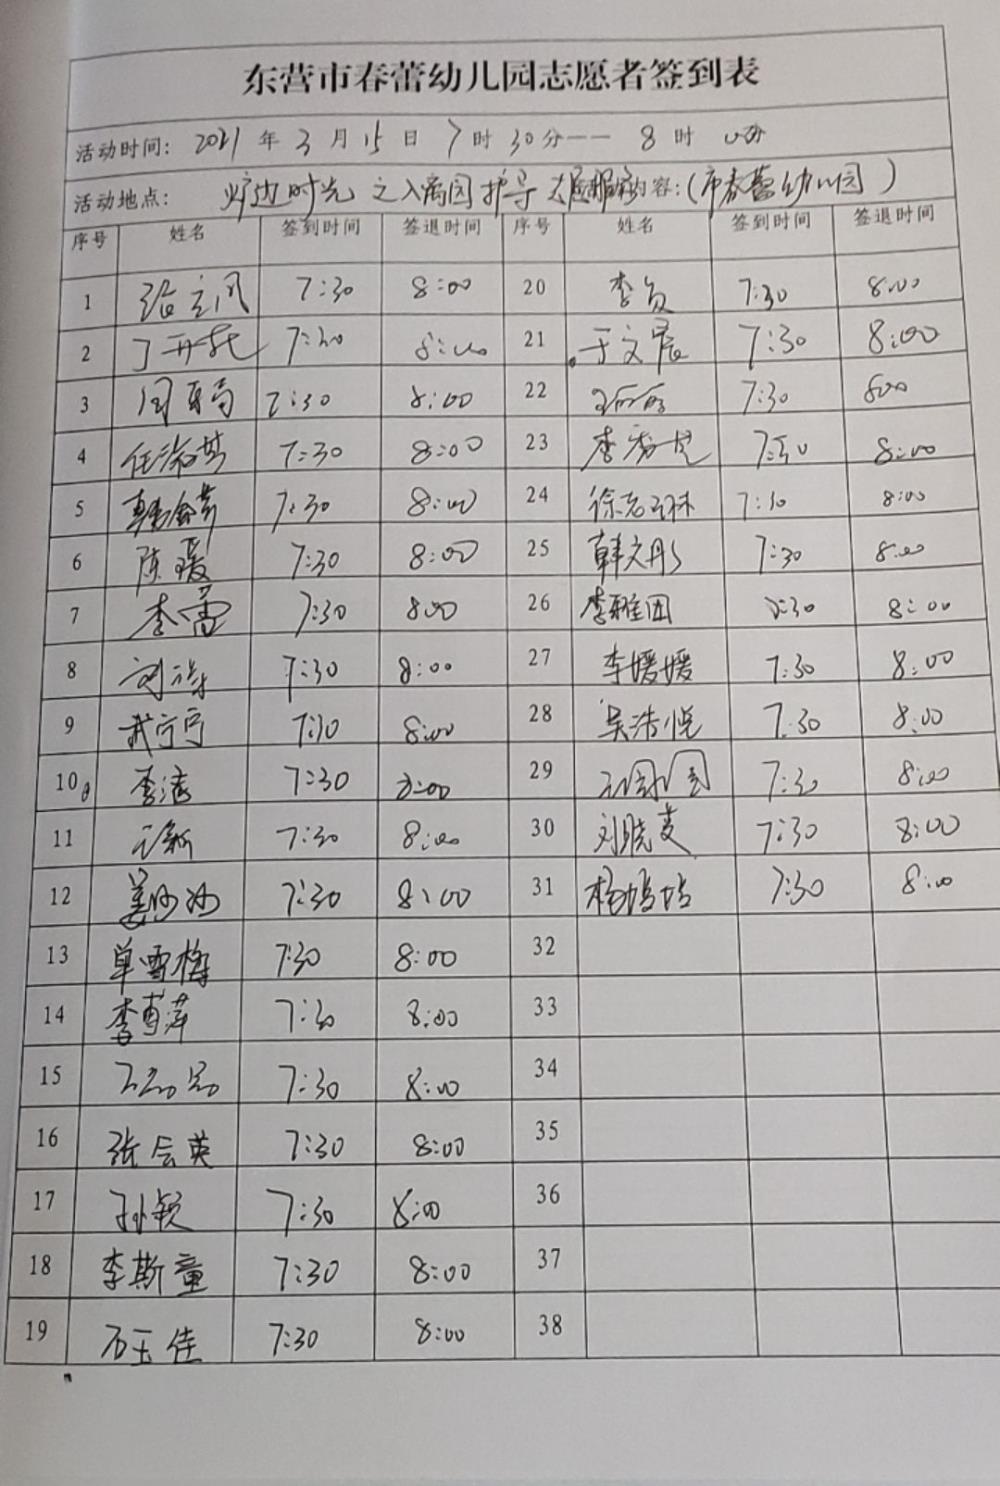 东营市春蕾幼儿园志愿者签到表
活动时间: 2021 年 3 月 15 日 7 时 30 分—— 8 时 00分
活动地点: 炉边时光 之入离园护导 内容:(市春蕾幼儿园)
序号 姓名 签到时间 签退时间 序号 姓名 签到时间 签退时间
1 7:30 8:00 20 7:30 8:00
2 7:30 8:00 21 于文晨 7:30 8:00
3 7:30 8:00 22 7:30 800
4 任淑英 7:30 8:00 23 7:30 8:00
5 7:30 8:00 24 7:30 8:00
6 陈瑷 7:30 8:00 25 韩文彤 7:30 8:00
7 李蕾 7:30 800 26 李雅团 7:30 8:00
8 7:30 8:00 27 李媛媛 7:30 8:00
9 武宁宁 7:30 8:00 28 吴浩悦 7:30 8:00
10 7:30 8:00 29 7:30 8:00
11 7:30 8:00 30 刘晓英 7:30 8:00
12 7:30 8:00 31 7:30 8:00
13 单雪梅 7:30 8:00 32
14 7:30 8:00 33
15 7:30 8:00 34
16 张会英 7:30 8:00 35
17 孙颖 7:30 8:00 36
18 李斯童 7:30 8:00 37
19 石玉佳 7:30 8:00 38